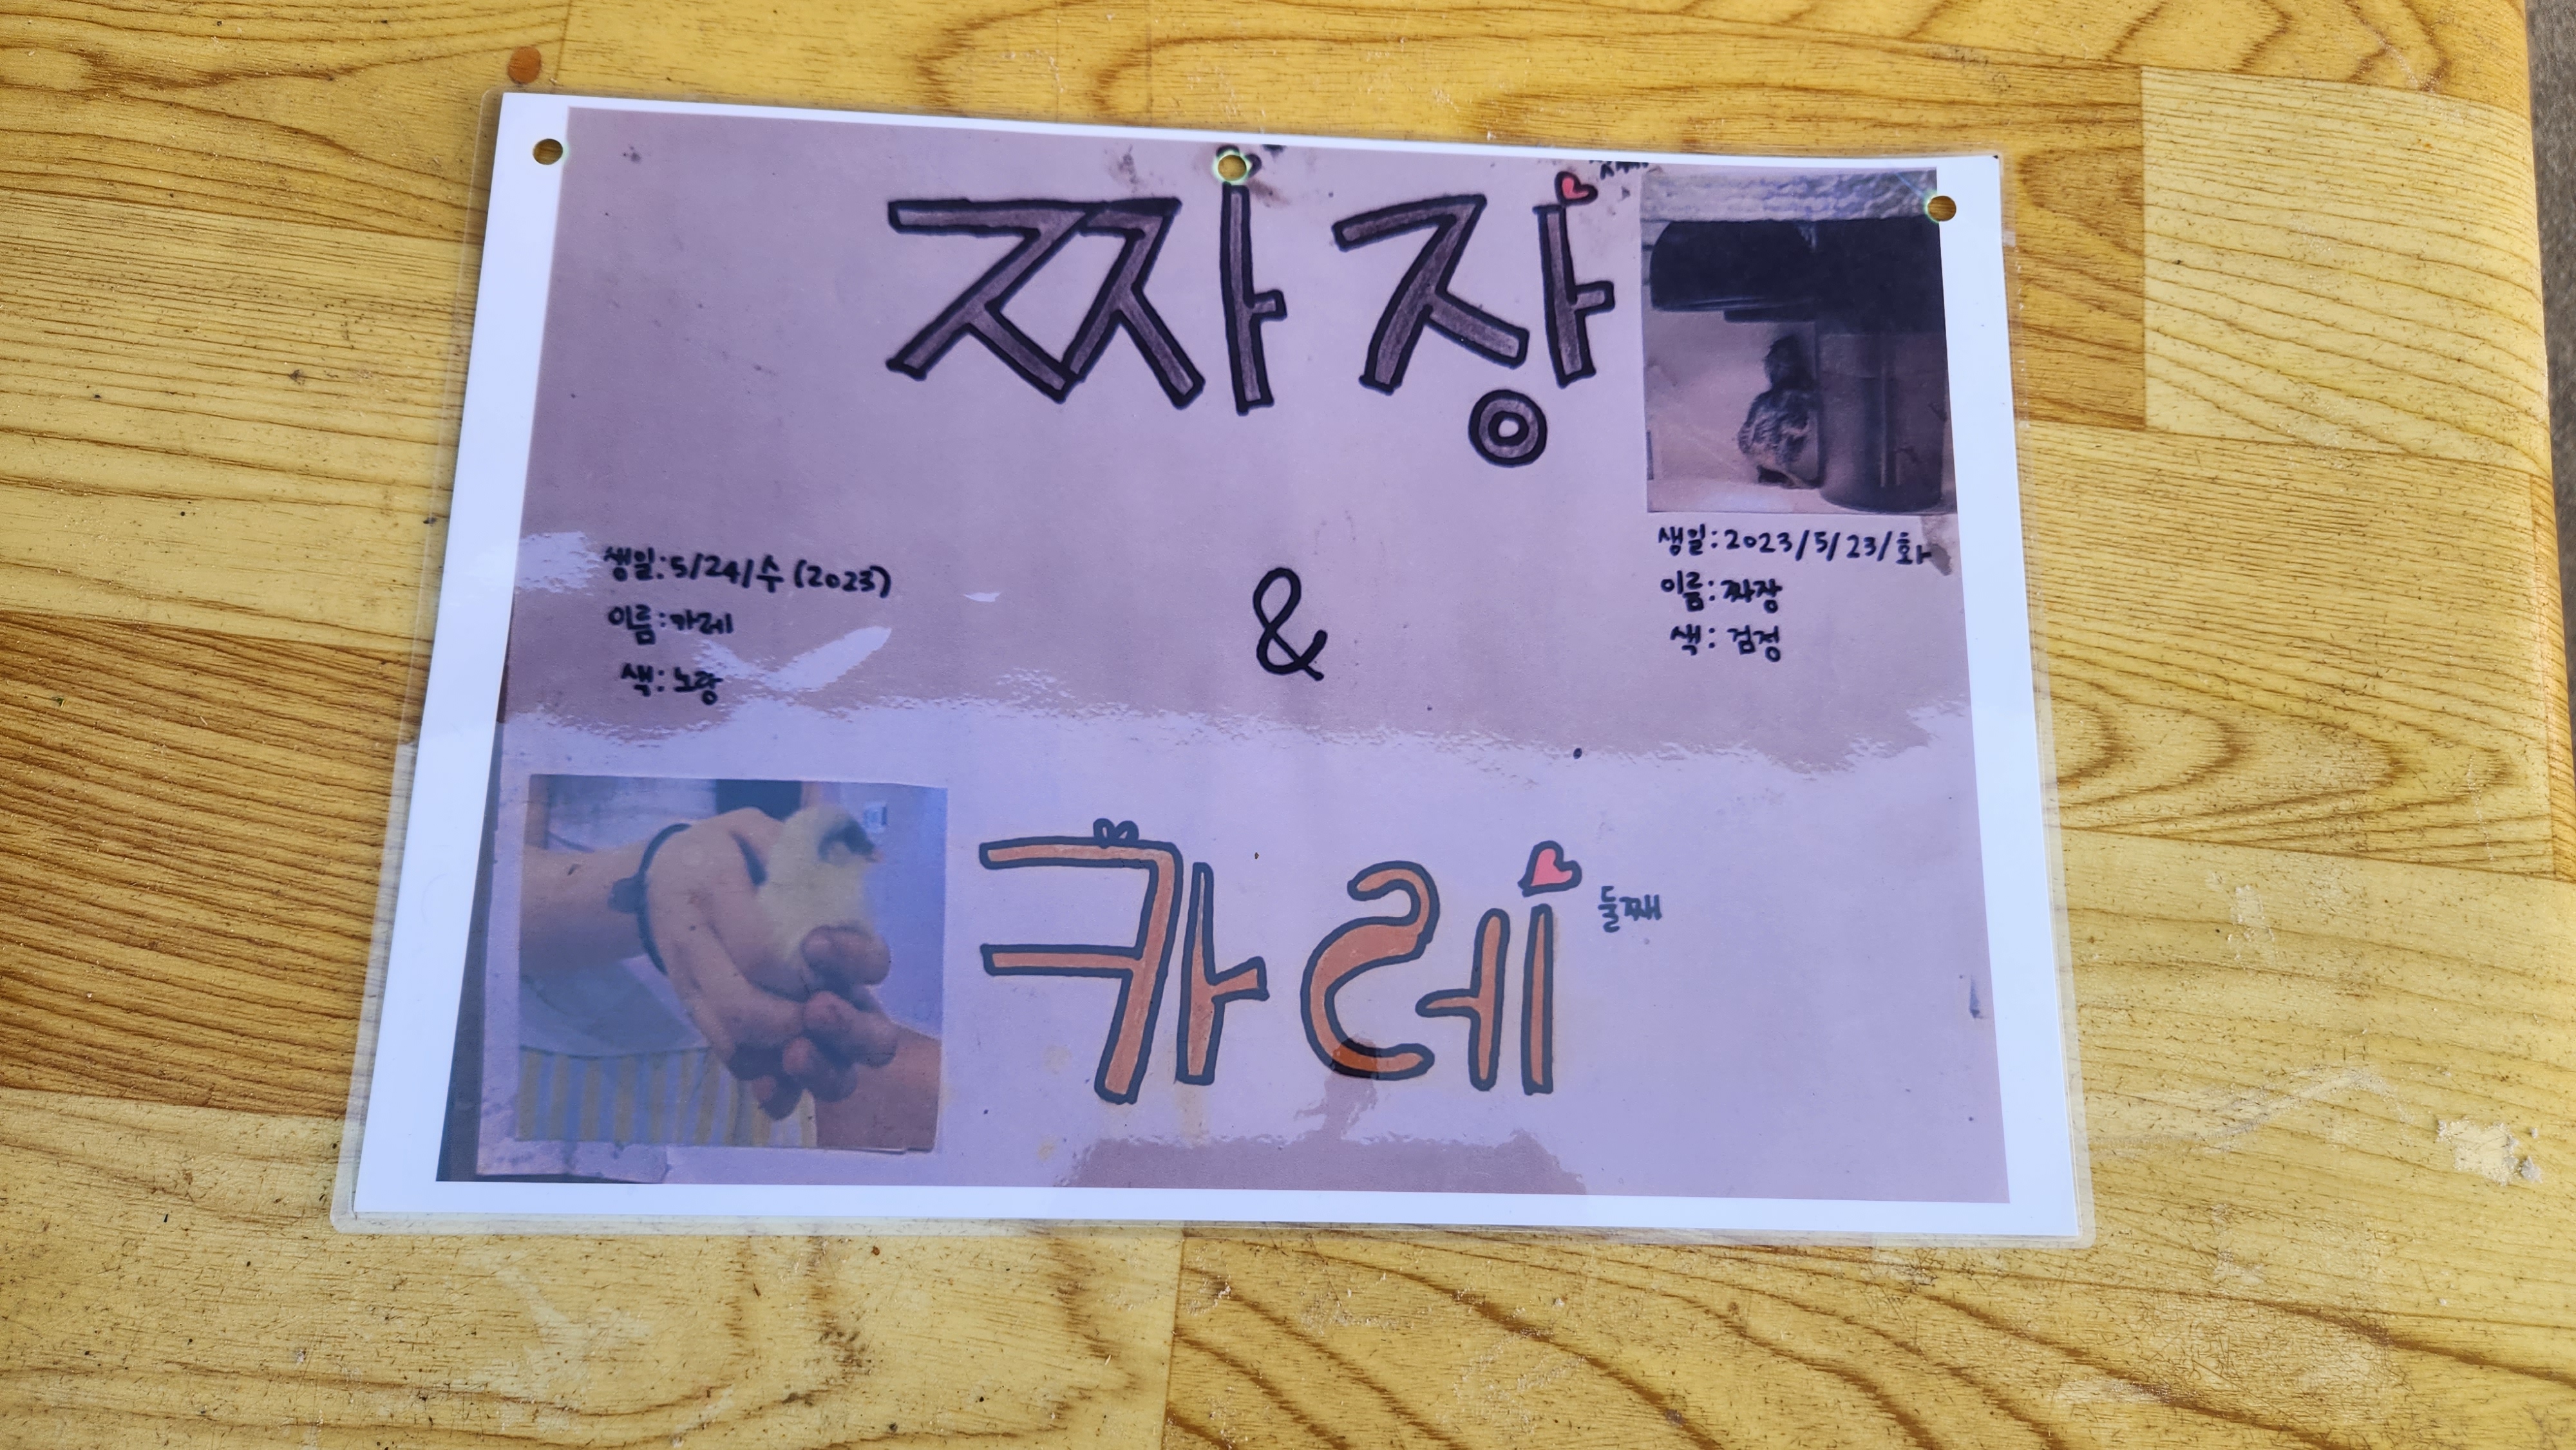 짜장
생일:2023/5/23/화
이름:짜장
색:검정
&
생일:5/24/수(2023)
이름:카레
색:노랑
카레
둘째